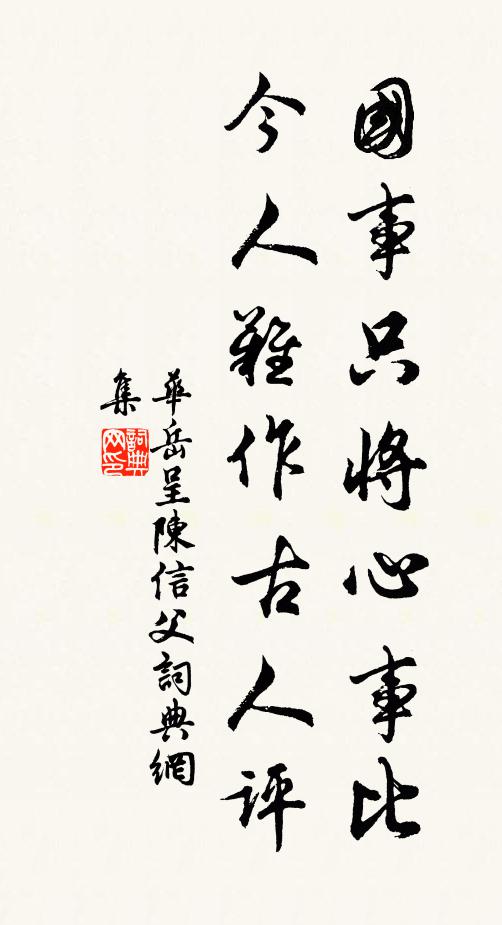 國事只將心事比
今人難作古人評
華岳呈陳信父詞典網
集
詞典
网印